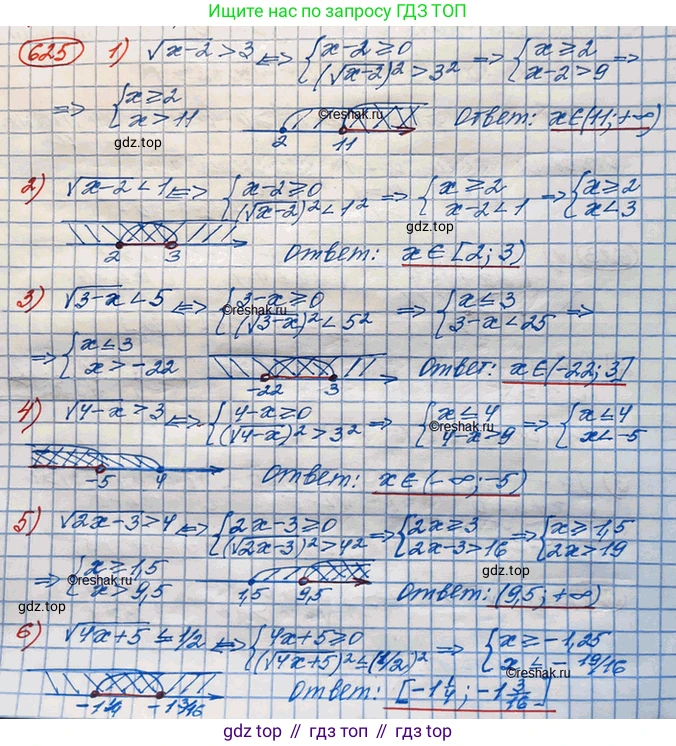 Ищите нас по запросу ГДЗ ТОП
625 1) √x-2 > 3 <=> {x-2 ≥ 0 (√x-2)² > 3² => {x ≥ 2 x-2 > 9 =>
=> {x ≥ 2 x > 11 2 11 Ответ: x∈(11; +∞)
©reshak.ru
gdz.top
2) √x-2 < 1 <=> {x-2 ≥ 0 (√x-2)² < 1² => {x ≥ 2 x-2 < 1 => {x ≥ 2 x < 3
gdz.top
2 3 Ответ: x∈[2; 3)
3) √3-x < 5 <=> {3-x ≥ 0 (√3-x)² < 5² => {x ≤ 3 3-x < 25 =>
©reshak.ru
=> {x ≤ 3 x > -22 -22 3 Ответ: x∈(-22; 3]
4) √4-x > 3 <=> {4-x ≥ 0 (√4-x)² > 3² => {x ≤ 4 4-x > 9 => {x ≤ 4 x < -5
©reshak.ru
-5 4 Ответ: x∈(-∞; -5)
5) √2x-3 > 4 <=> {2x-3 ≥ 0 (√2x-3)² > 4² => {2x ≥ 3 2x-3 > 16 => {x ≥ 1,5 2x > 19
gdz.top
=> {x ≥ 1,5 x > 9,5 1,5 9,5 Ответ: (9,5; +∞)
©reshak.ru
gdz.top
6) √4x+5 ≤ 1/2 <=> {4x+5 ≥ 0 (√4x+5)² ≤ (1/2)² => {x ≥ -1,25 x ≤ - 19/16
-1 1/4 -1 3/16 Ответ: [-1 1/4; -1 3/16]
gdz.top // гдз.топ // gdz.top